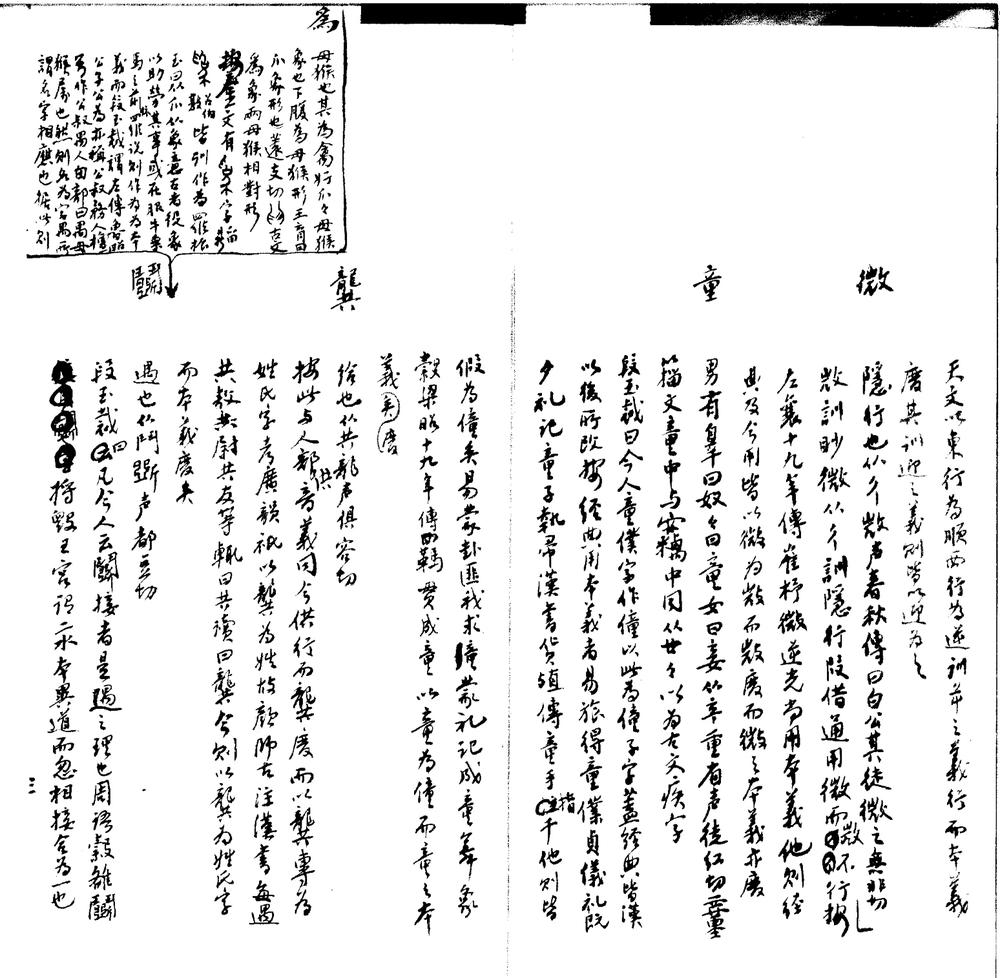 微
天文以東行為順西行為逆訓年之義行而本義
廢其訓迎之義則皆以迎為之
隱行也从彳𢼸声春秋傳曰白公其徒微之無非切
𢼸訓眇微从彳訓隱行段借通用微而𢼸不行按
左襄十九年傳崔杼微逆光尚用本義他則經
典及今用皆以微為𢼸而𢼸廢而微之本義亦廢
童
男有辠曰奴奴曰童女曰妾从䇂重省声徒紅切
籀文童中与竊中同从廿廿以為古文疾字
段玉裁曰今人童僕字作僮以此為僮子字蓋經典皆漢
以後所改按經典用本義者易旅得童僕貞儀礼既
夕礼記童子執帚漢書貨殖傳童手指千他則皆
假為僮矣易蒙卦匪我求童蒙礼記成童舞象
穀梁昭十九年傳羈貫成童以童為僮而童之本
義廢矣
龔
給也从共龍声俱容切
按此与人部供音義同今供行而龔廢而以龔專為
姓氏字考廣韻衹以龔為姓故顏師古注漢書每遇
共敖共尉共友等輒曰共讀曰龔今則以龔為姓氏字
而本義廢矣
鬭
遇也从鬥斲声都豆切
段玉裁曰凡今人云鬭接者是遇之理也周語穀雒鬭
將毀王宮謂二水本異道而忽相接合為一也
三
為
母猴也其為禽好爪爪母猴
象也下腹為母猴形王育曰
爪象形也薳支切古文
為象兩母猴相對形
按金文有
皆則作為羅振
玉曰从爪从象意古者役象
以助勞其事或在服牛乘
馬之前
義而段玉裁謂左傳魯昭
公子公為亦稱公叔務人檀
弓作公叔禺人由部曰禺母
猴屬也然則名為字禺所
謂名字相應也據此則